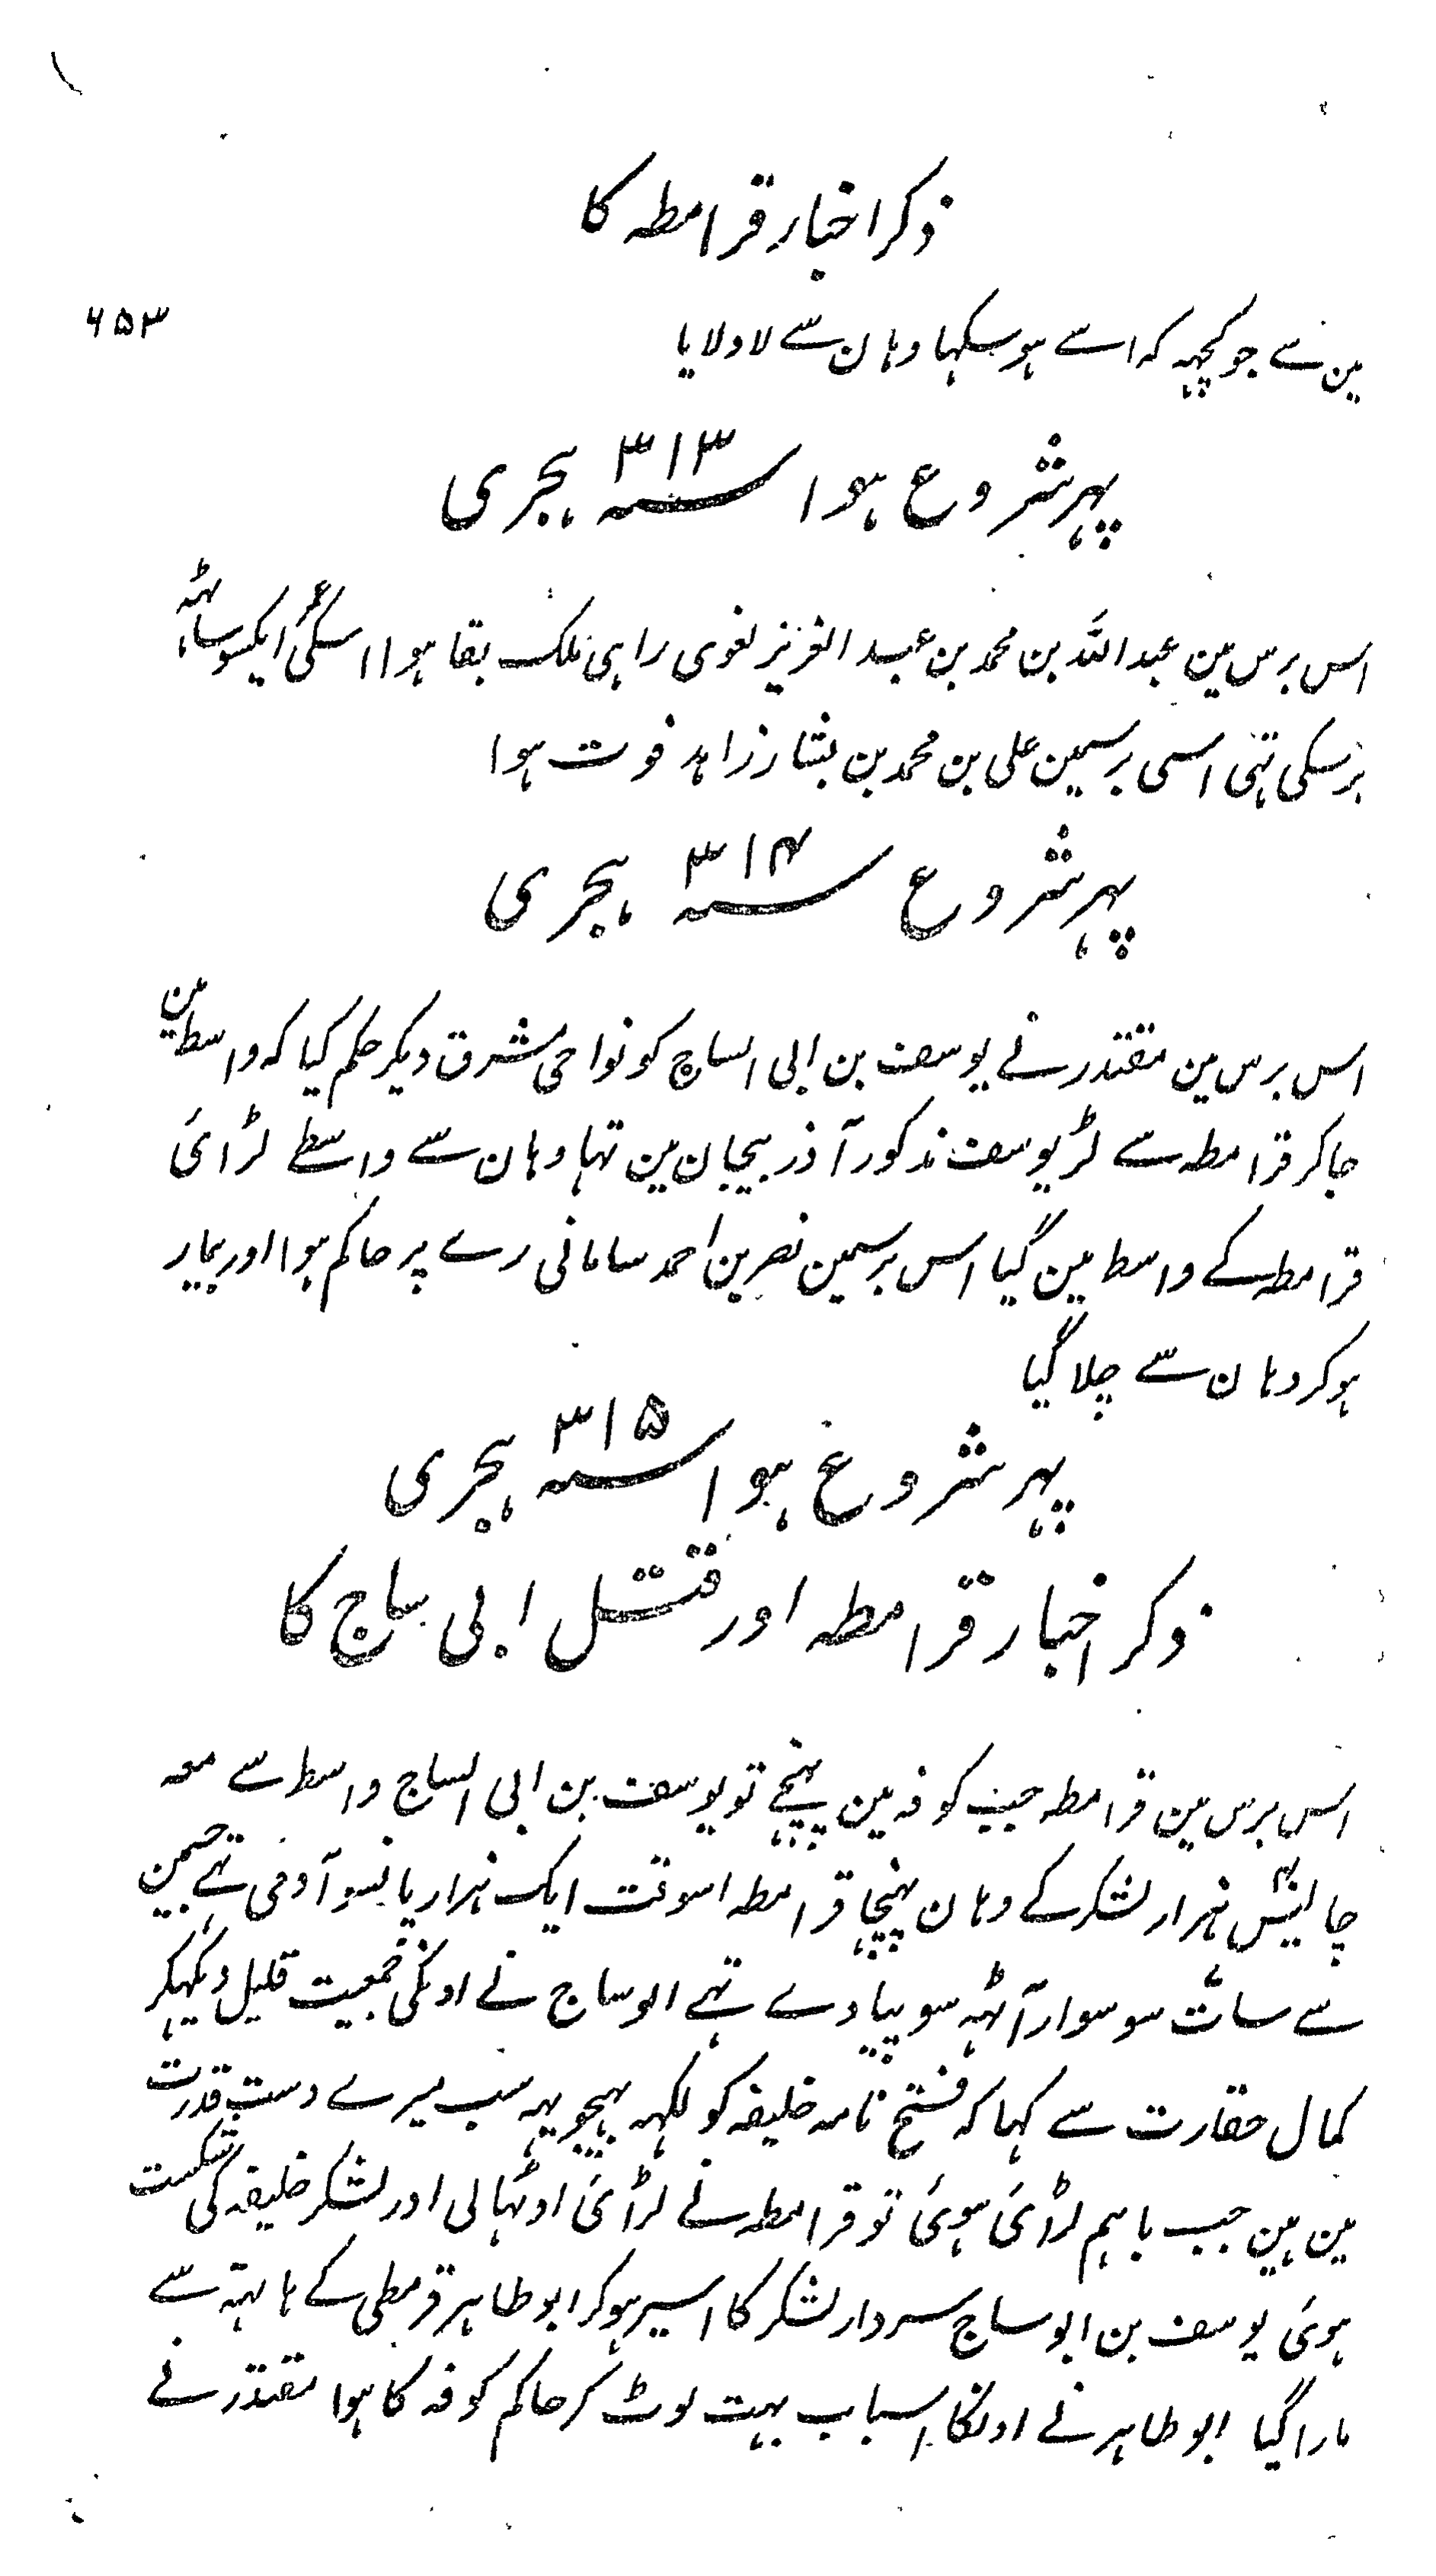 ذکر اخبار قرامطہ کا
۶۵۳
مین سے جو کچہہ کہ اسے ہو سکہا وہان سے لاد لایا
پہر شروع ہوا سنہ ۳۱۳ ہجری
اس برس مین عبد اللہ بن محمد بن عبد العزیز لغوی راہی ملک بقا ہوا اسکی عمر ایکسو ساٹہہ
برسکی تہی اسی برسمین علی بن محمد بن بشار زاہد فوت ہوا
پہر شروع سنہ ۳۱۴ ہجری
اس برس مین مقتدر نے یوسف بن ابی الساج کو نواحی مشرق دیکر حکم کیا کہ واسط مین
جاکر قرامطہ سے لڑ یوسف مذکور آذربیجان مین تہا وہان سے واسطے لڑائی
قرامطہ کے واسط مین گیا اس برسمین نصر بن احمد سامانی رے پر حاکم ہوا اور بیمار
ہوکر وہان سے چلا گیا
پہر شروغ ہوا سنہ ۳۱۵ ہجری
ذکر اخبار قرامطہ اور قتل ابی ساج کا
اس برس مین قرامطہ جب کوفہ مین پہنچے تو یوسف بن ابی الساج واسط سے معہ
چالیس ہزار لشکر کے وہان پہنچا قرامطہ اسوقت ایک ہزار پانسو آدمی تہے جسمین
سے سات سو سوار آٹہہ سو پیادے تہے ابو ساج نے اونکی جمعیت قلیل دیکہکر
کمال حقارت سے کہا کہ فتح نامہ خلیفہ کو لکہہ بہیجو یہہ سب میرے دست قدرت
مین ہین جب باہم لڑائی ہوئی تو قرامطہ نے لڑائی اوٹہالی اور لشکر خلیفہ کی شکست
ہوئی یوسف بن ابو ساج سردار لشکر کا اسیر ہوکر ابو طاہر قرمطی کے ہاتہہ سے
مارا گیا ابو طاہر نے اونکا اسباب بہت لوٹ کر حاکم کوفہ کا ہوا مقتدر نے